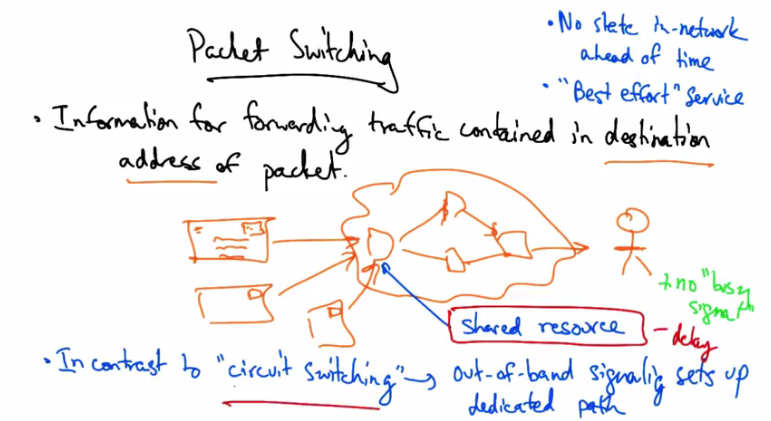 Packet Switching
• No state in-network
ahead of time
• "Best effort" Service
• Information for forwarding traffic contained in destination
address of packet.
+ no "busy
signal"
shared resource
- delay
• In contrast to "circuit switching" → out-of-band signalig sets up
dedicated path